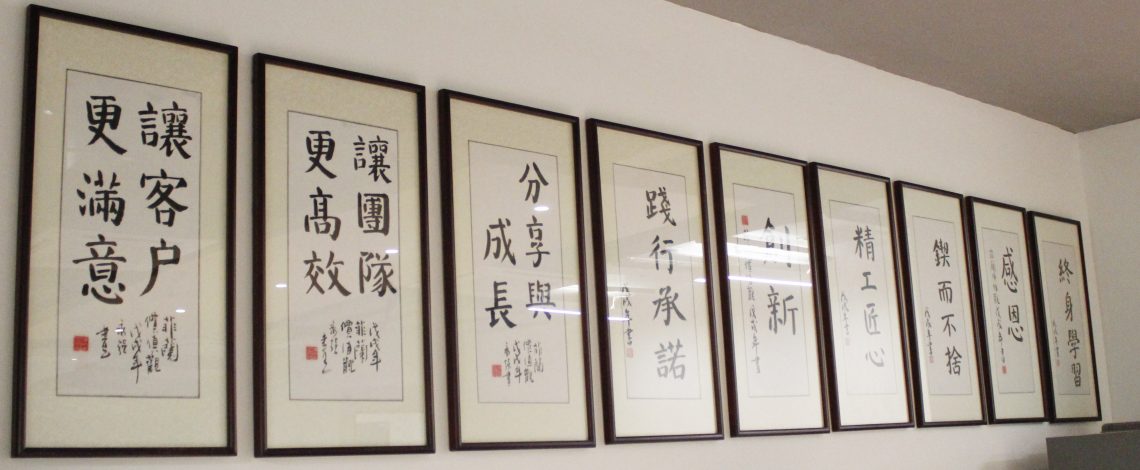 讓客户
更滿意
菲蘭
價值觀
戊戌年
讓團隊
更高效
戊戌年
菲蘭
價值觀
分享與
成長
菲蘭
價值觀
戊戌年
踐行承諾
戊戌年書
創新
價值觀戊戌年書
精工匠心
戊戌年書
鍥而不捨
戊戌年書
感恩
終身學習
戊戌年書